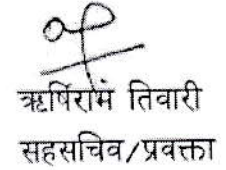 ऋषिराम तिवारी
सहसचिव/प्रवक्ता